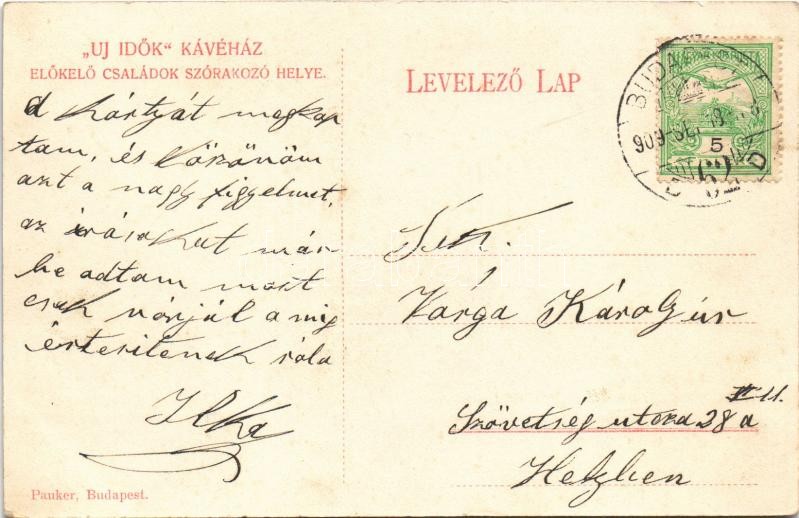 „UJ IDŐK“ KÁVÉHÁZ
ELŐKELŐ CSALÁDOK SZÓRAKOZÓ HELYE.
LEVELEZŐ LAP
BUDAPEST
909 SEP
5
62
d kártyát megkap
tam, és köszönöm
azt a nagy figyelmet,
az írásokat már
be adtam most
csak várjál a mig
értesitenek róla
Ilka
Tek.
Várga Károly úr
II 11.
Szövetség utcza 28 a
Helyben
Pauker, Budapest.